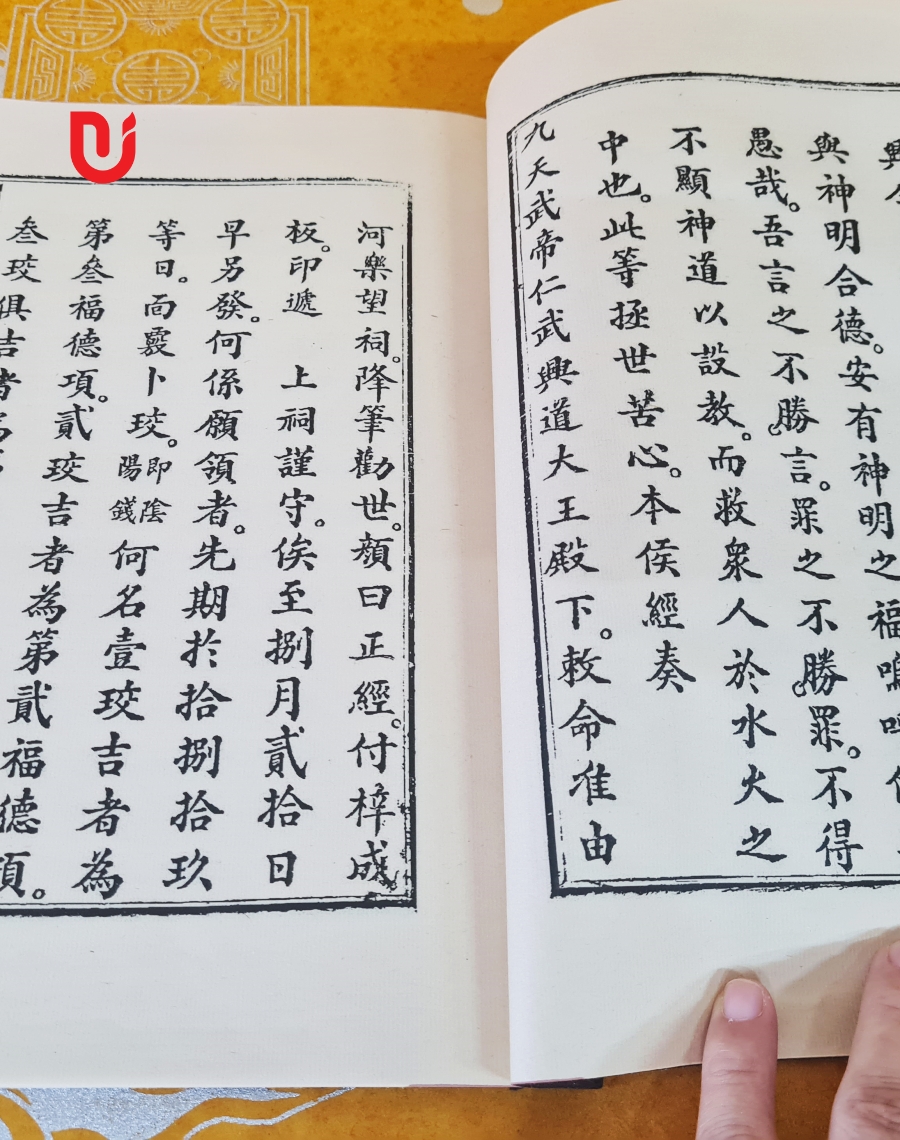 與神明合德。安有神明之福嗚呼
愚哉。吾言之不勝言。罪之不勝罪。不得
不顯神道以設教。而救衆人於水火之
中也。此等拯世苦心。本侯經奏
九天武帝仁武興道大王殿下。敕命准由
河樂望祠。降筆勸世。顏曰正經。付梓成
板。印遞　上祠謹守。俟至捌月貳拾日
早另發。何係願領者。先期於拾捌拾玖
等日。面靈卜珓。即陰陽錢何名壹珓吉者為
第叁福德項。貳珓吉者為第貳福德項。
叁珓俱吉者